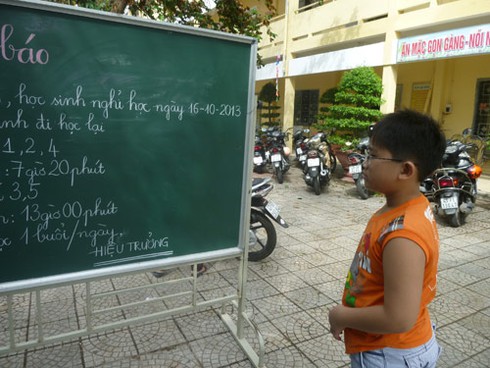 báo
, học sinh nghỉ học ngày 16-10-2013
inh đi học lại
1, 2, 4
: 7 giờ 20 phút
3, 5
: 13 giờ 00 phút
1 buổi/ngày.
HIỆU TRƯỞNG
ĂN MẶC GỌN GÀNG - NÓI N